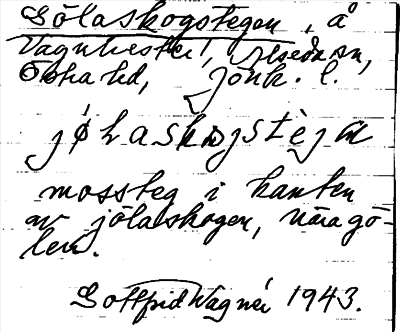 Gölaskogstegen, å
Vagnhester, Alseda sn,
Östra hd, Jönk. l.
jølaskωgstèjɑ
mossteg i kanten
av jölaskogen, nära gö-
len.
Gottfrid Wagnér 1943.